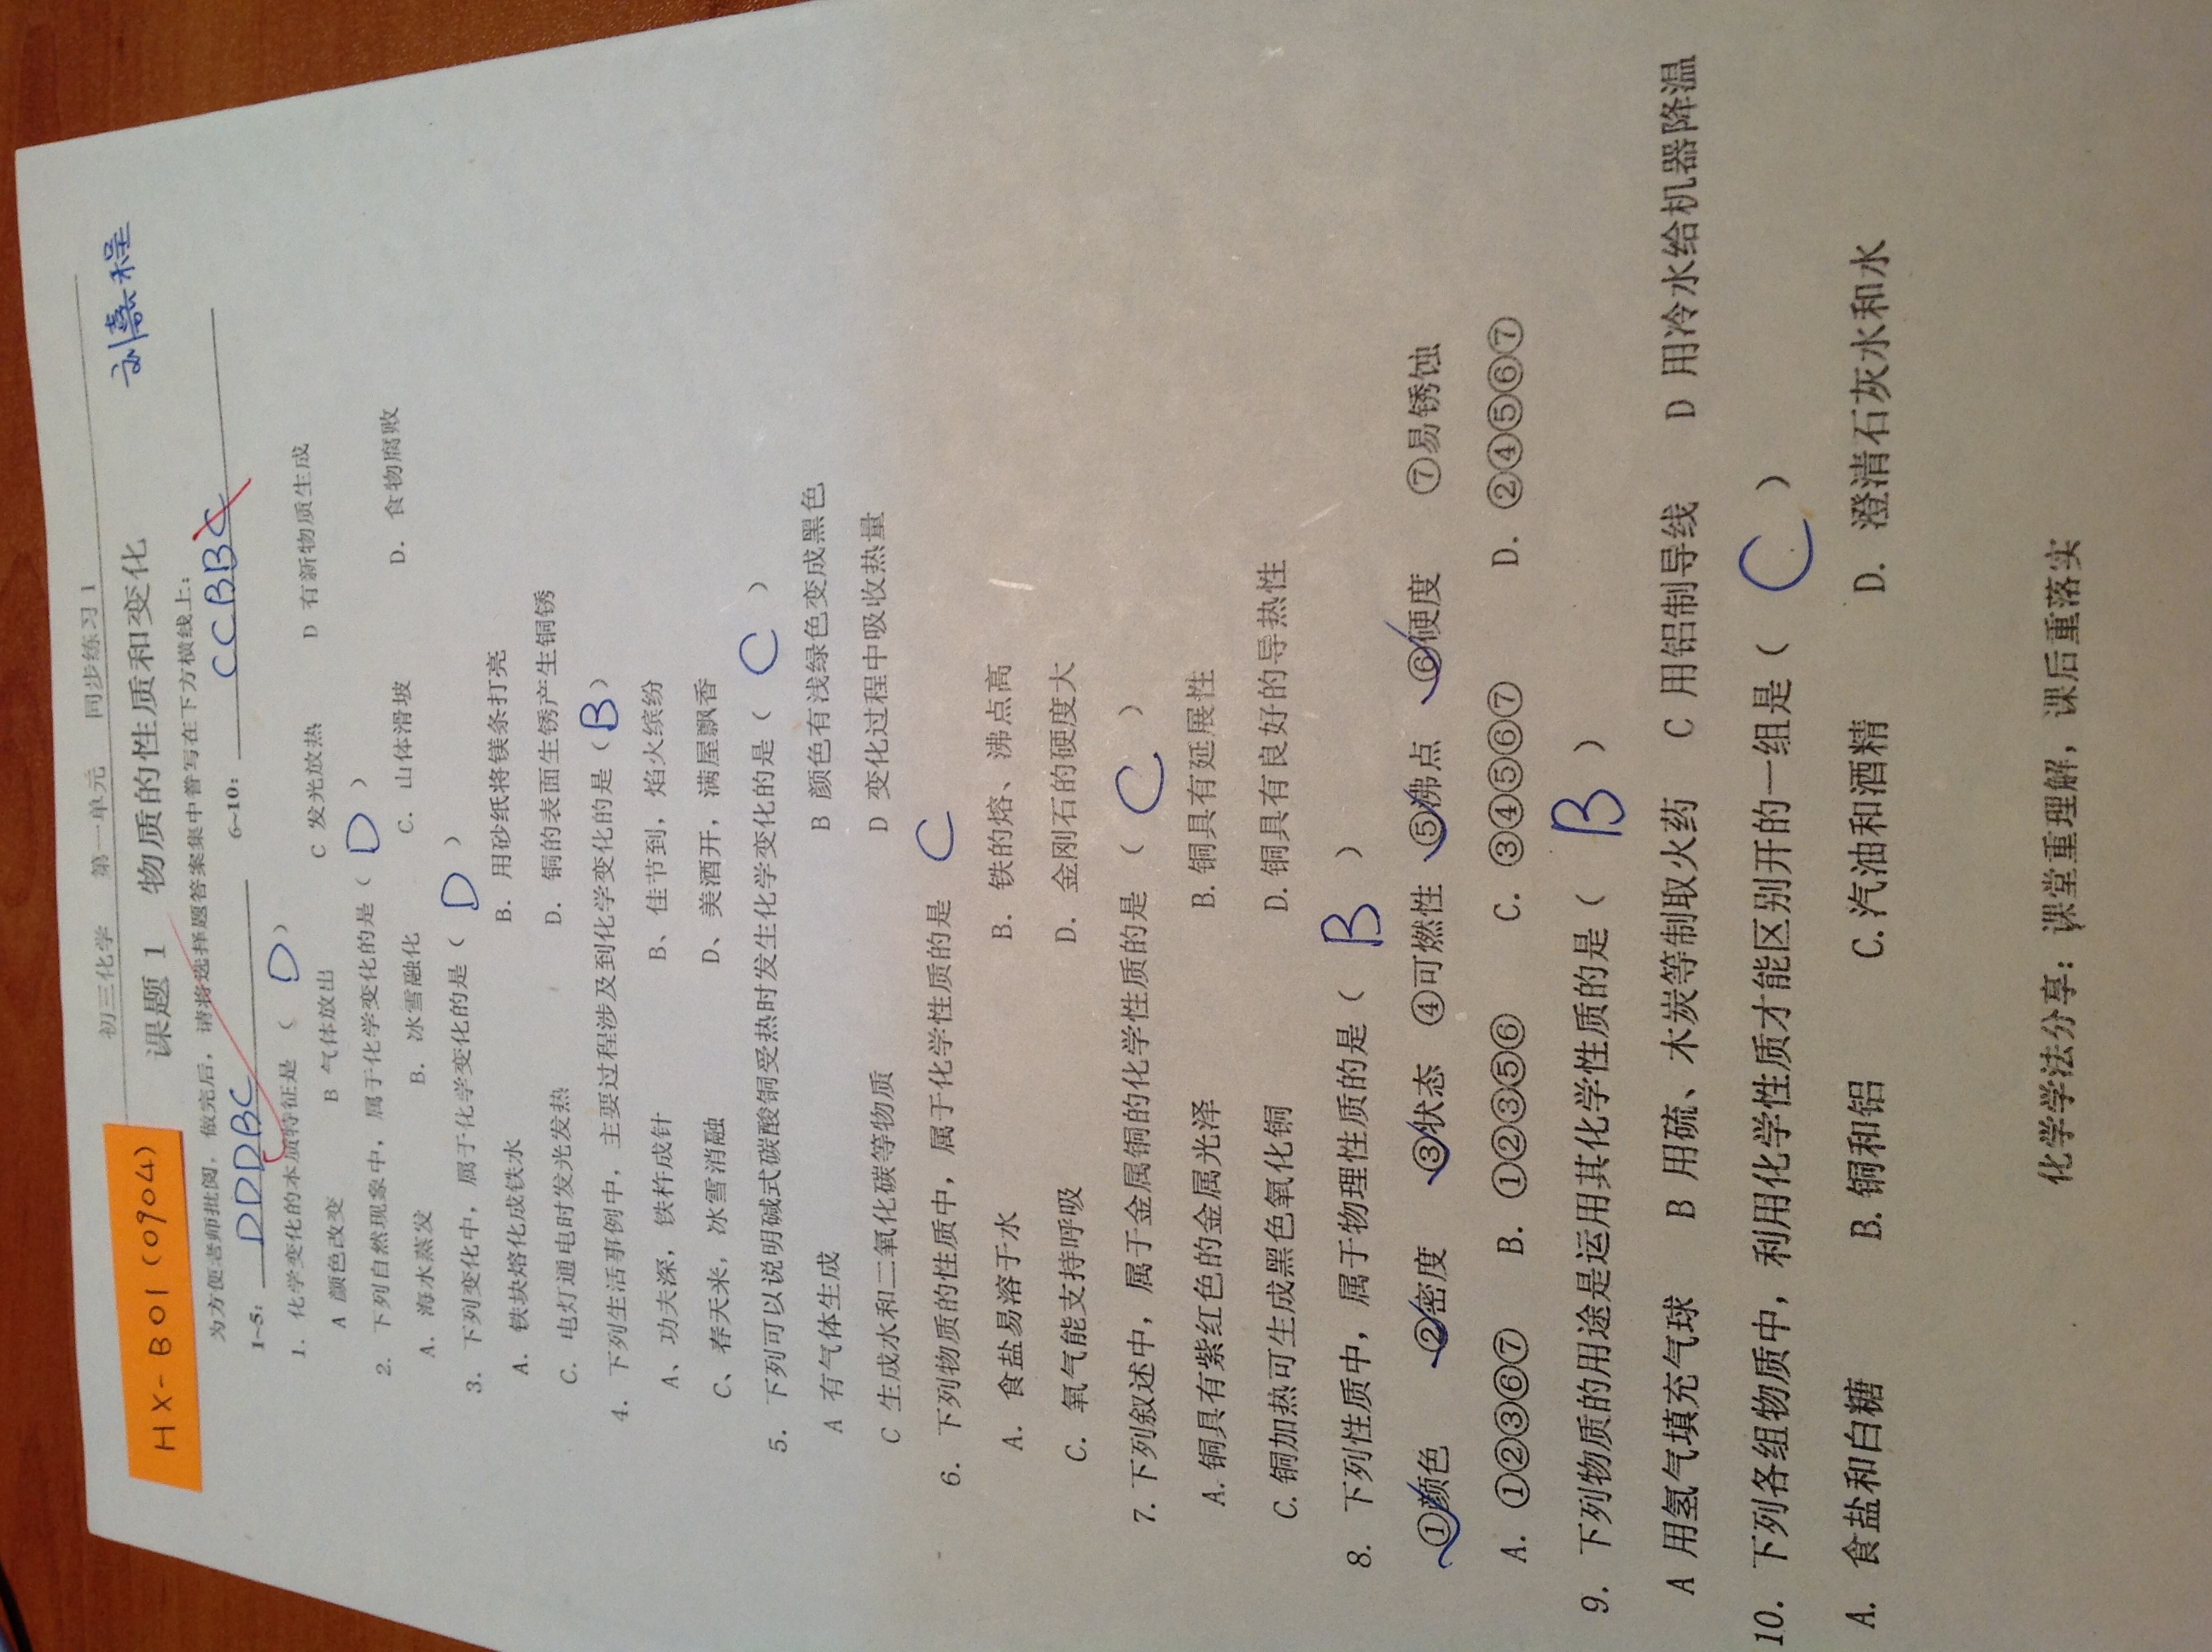 初三化学 第一单元 同步练习1
HX-B01(0904)
课题1 物质的性质和变化
刘嘉程
为方便老师批阅，做完后，请将选择题答案集中誊写在下方横线上：
1~5: DDDBC 6~10: CCBBC
1. 化学变化的本质特征是（ D ）
A 颜色改变 B 气体放出 C 发光放热 D 有新物质生成
2. 下列自然现象中，属于化学变化的是（ D ）
A. 海水蒸发 B. 冰雪融化 C. 山体滑坡 D. 食物腐败
3. 下列变化中，属于化学变化的是（ D ）
A. 铁块熔化成铁水 B. 用砂纸将镁条打亮
C. 电灯通电时发光发热 D. 铜的表面生锈产生铜锈
4. 下列生活事例中，主要过程涉及到化学变化的是（ B ）
A、功夫深，铁杵成针 B、佳节到，焰火缤纷
C、春天来，冰雪消融 D、美酒开，满屋飘香
5. 下列可以说明碱式碳酸铜受热时发生化学变化的是（ C ）
A 有气体生成 B 颜色有浅绿色变成黑色
C 生成水和二氧化碳等物质 D 变化过程中吸收热量
6. 下列物质的性质中，属于化学性质的是 C
A. 食盐易溶于水 B. 铁的熔、沸点高
C. 氧气能支持呼吸 D. 金刚石的硬度大
7. 下列叙述中，属于金属铜的化学性质的是 （ C ）
A. 铜具有紫红色的金属光泽 B. 铜具有延展性
C. 铜加热可生成黑色氧化铜 D. 铜具有良好的导热性
8. 下列性质中，属于物理性质的是（ B ）
①颜色 ②密度 ③状态 ④可燃性 ⑤沸点 ⑥硬度 ⑦易锈蚀
A. ①②③⑥⑦ B. ①②③⑤⑥ C. ③④⑤⑥⑦ D. ②④⑤⑥⑦
9. 下列物质的用途是运用其化学性质的是（ B ）
A 用氢气填充气球 B 用硫、木炭等制取火药 C 用铝制导线 D 用冷水给机器降温
10. 下列各组物质中，利用化学性质才能区别开的一组是（ C ）
A. 食盐和白糖 B. 铜和铝 C. 汽油和酒精 D. 澄清石灰水和水
化学学法分享：课堂重理解，课后重落实